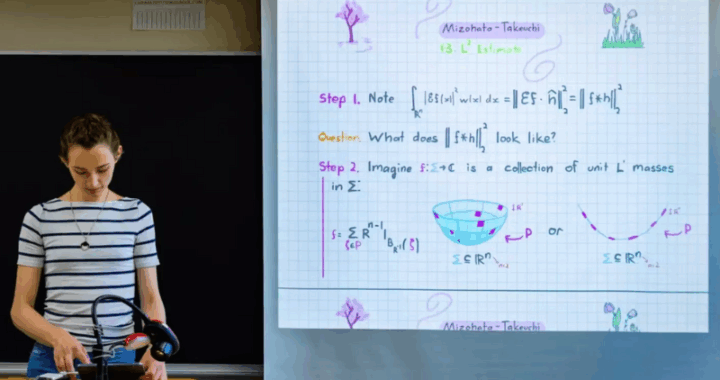 Mizohata-Takeuchi
§3: L² Estimate
Step 1. Note ∫_{ℝⁿ} |Ef(x)|² w(x) dx = ‖Ef · ĥ‖₂² = ‖f*h‖₂²
Question: What does ‖f*h‖₂² look like?
Step 2. Imagine f:Σ→ℂ is a collection of unit L¹ masses
in Σ:
f = Σ_{ξ∈P} R^{n-1} 1_{B_{R^{-1}}(ξ)}
P or P
Σ ⊆ ℝⁿ Σ ⊆ ℝⁿ
Mizohata-Takeuchi